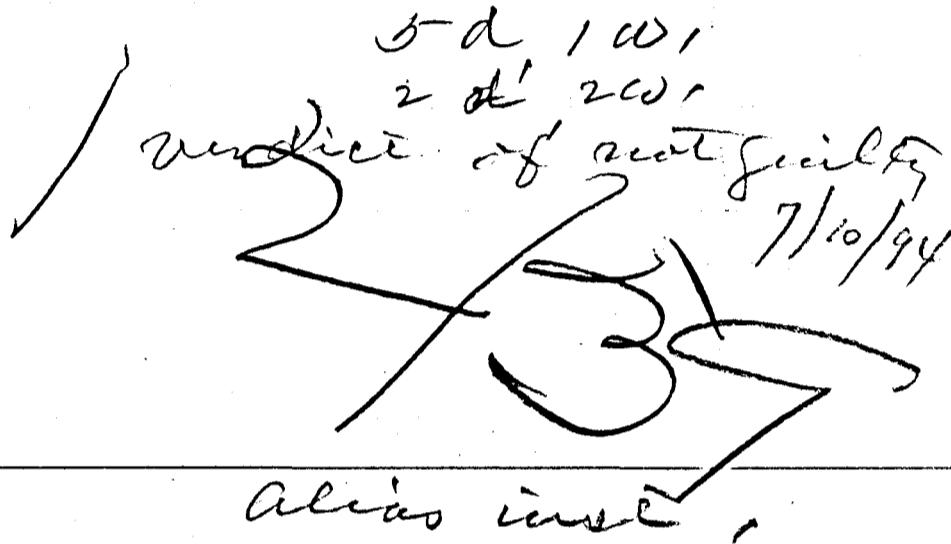 5 d 1 w,
2 d 2 w,
verdict of not guilty
7/10/94
Alias inst,